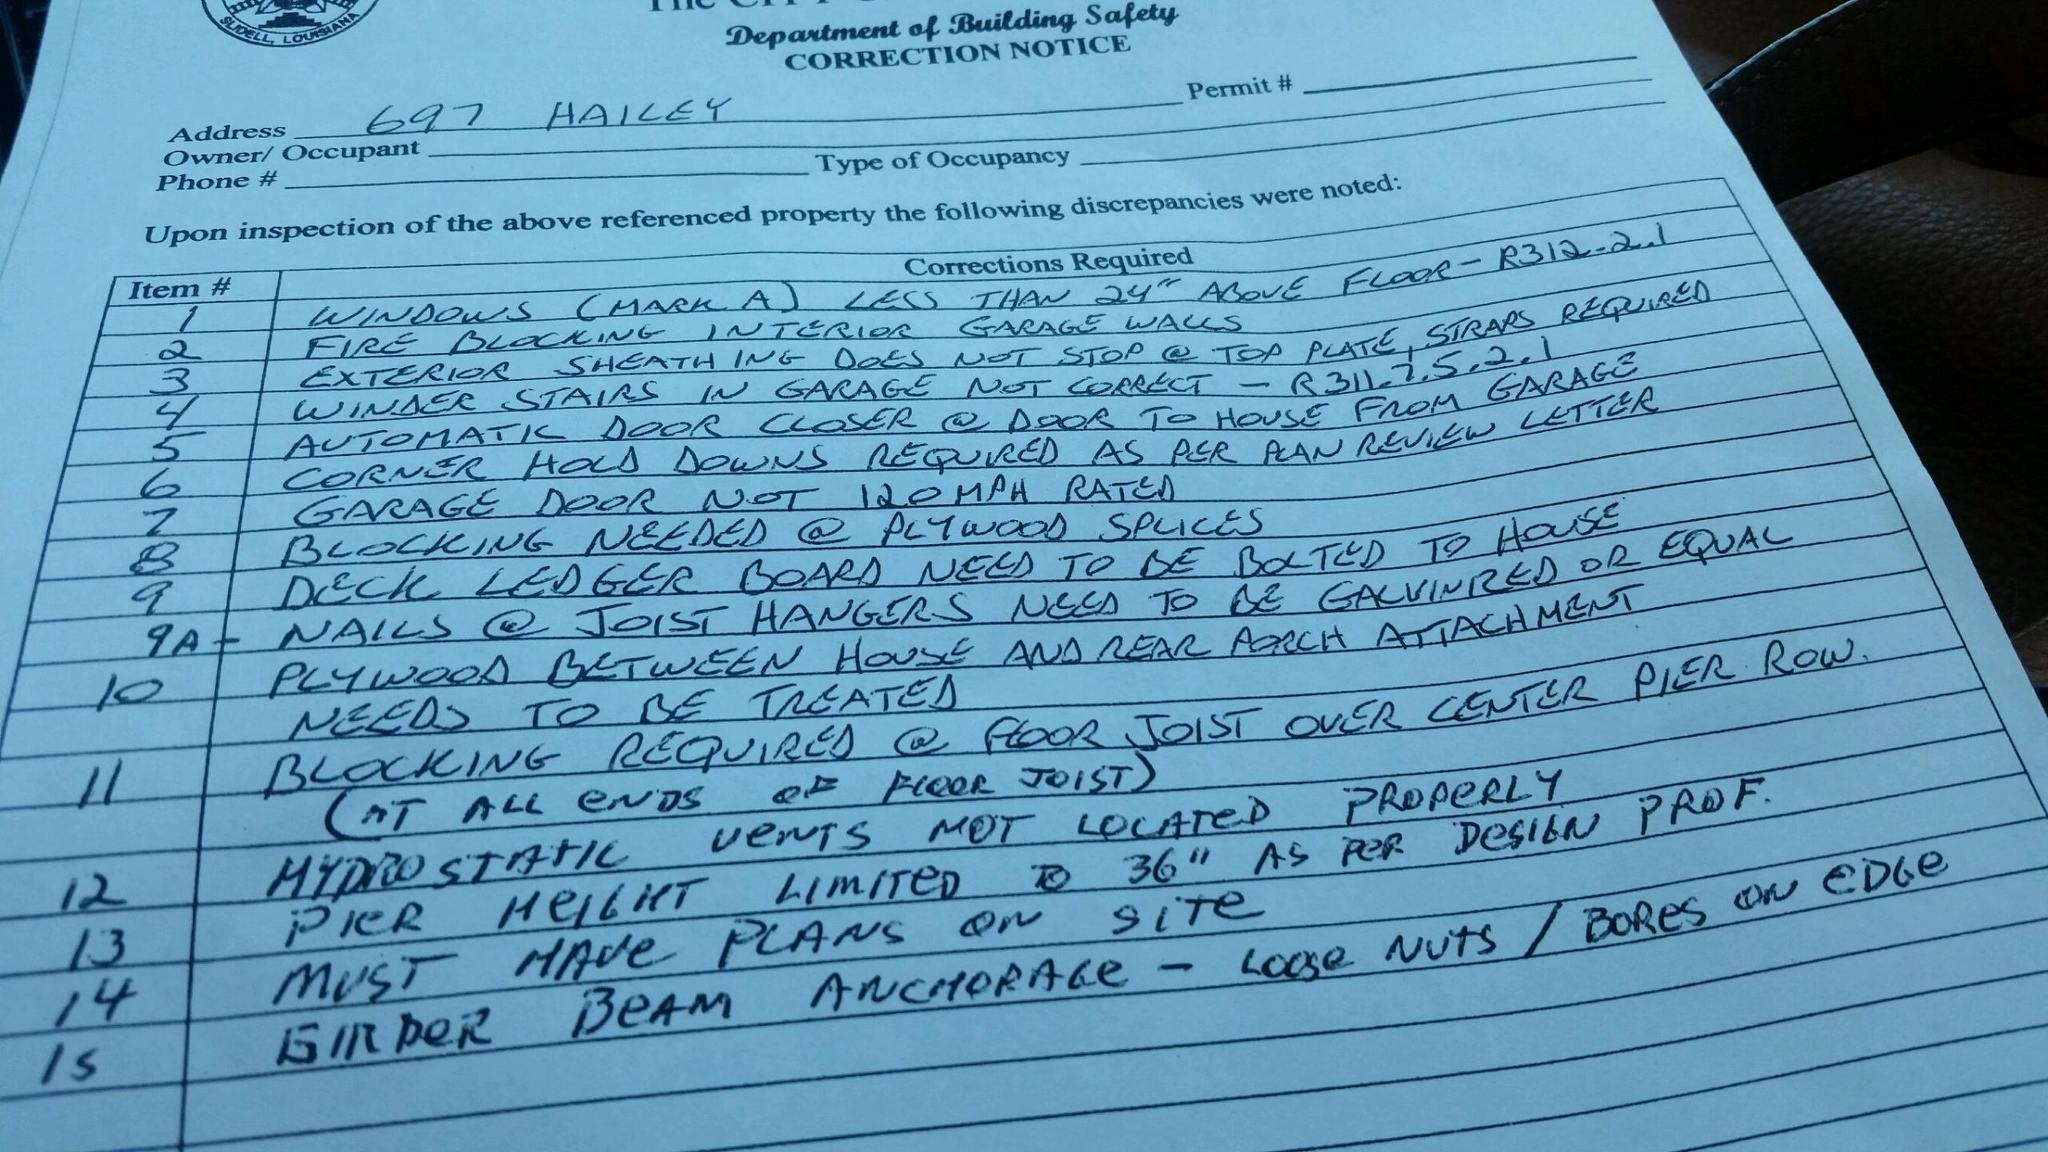 SLIDELL, LOUISIANA
Department of Building Safety
CORRECTION NOTICE
Address 697 HAILEY Permit #
Owner/ Occupant
Phone # Type of Occupancy
Upon inspection of the above referenced property the following discrepancies were noted:
Item # Corrections Required
1 WINDOWS (MARK A) LESS THAN 24" ABOVE FLOOR - R312.2.1
2 FIRE BLOCKING INTERIOR GARAGE WALLS
3 EXTERIOR SHEATHING DOES NOT STOP @ TOP PLATE, STRAPS REQUIRED
4 WINDER STAIRS IN GARAGE NOT CORRECT - R311.7.5.2.1
5 AUTOMATIC DOOR CLOSER @ DOOR TO HOUSE FROM GARAGE
6 CORNER HOLD DOWNS REQUIRED AS PER PLAN REVIEW LETTER
7 GARAGE DOOR NOT 120MPH RATED
8 BLOCKING NEEDED @ PLYWOOD SPLICES
9 DECK LEDGER BOARD NEED TO BE BOLTED TO HOUSE
9A - NAILS @ JOIST HANGERS NEED TO BE GALVINIRED OR EQUAL
10 PLYWOOD BETWEEN HOUSE AND REAR PORCH ATTACHMENT
NEEDS TO BE TREATED
11 BLOCKING REQUIRED @ FLOOR JOIST OVER CENTER PIER ROW.
(AT ALL ENDS OF FLOOR JOIST)
12 HYDROSTATIC VENTS NOT LOCATED PROPERLY
13 PIER HEIGHT LIMITED TO 36" AS PER DESIGN PROF.
14 MUST HAVE PLANS ON SITE
15 GIRDER BEAM ANCHORAGE - LOOSE NUTS / BORES ON EDGE